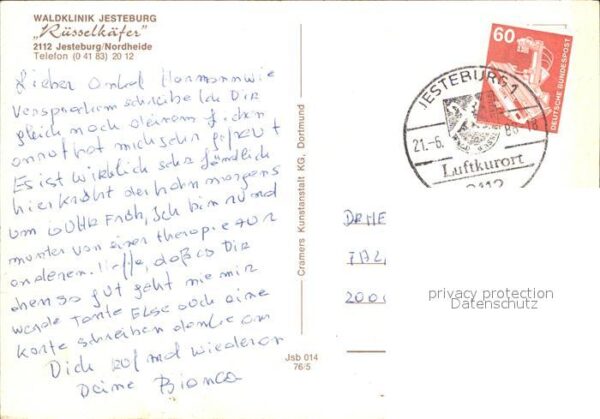 WALDKLINIK JESTEBURG
„Rüsselkäfer"
2112 Jesteburg/Nordheide
Telefon (0 41 83) 20 12
Lieber Onkel Hermann wie
versprochen schreibe Ich Dir
gleich nach deinem lieben
anruf hat mich sehr gefreut
Es ist wirklich sehr ländlich
hier kräht der hahn morgens
um Uhr Früh, Ich bin rund
munter von einer therapie zur
anderen. Hoffe, daß es Dir
ebenso gut geht wie mir
werde Tante Else auch eine
Karte schreiben denke an
Dich mal wieder an
Deine Bianca
Cramers Kunstanstalt KG, Dortmund
Jsb 014
76/5
60
DEUTSCHE BUNDESPOST
JESTEBURG 1
21.-6. 18
Luftkurort
2112
privacy protection
Datenschutz